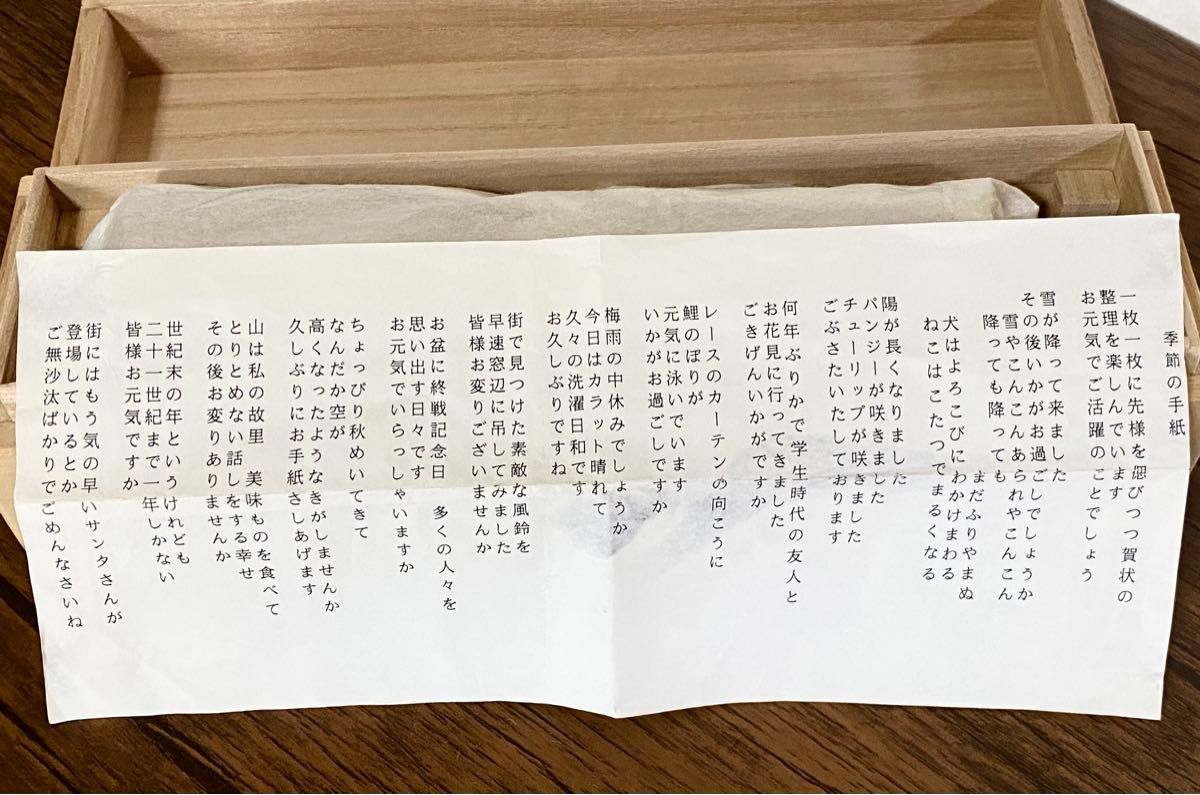 季節の手紙
一枚一枚に先様を偲びつつ賀状の
整理を楽しんでいます
お元気でご活躍のことでしょう
雪が降って来ました
その後いかがお過ごしでしょうか
雪やこんこんあられやこんこん
降っても降っても
まだふりやまぬ
犬はよろこびにわかけまわる
ねこはこたつでまるくなる
陽が長くなりました
パンジーが咲きました
チューリップが咲きました
ごぶさたいたしております
何年ぶりかで学生時代の友人と
お花見に行ってきました
ごきげんいかがですか
レースのカーテンの向こうに
鯉のぼりが
元気に泳いでいます
いかがお過ごしですか
梅雨の中休みでしょうか
今日はカラット晴れて
久々の洗濯日和です
お久しぶりですね
街で見つけた素敵な風鈴を
早速窓辺に吊してみました
皆様お変りございませんか
お盆に終戦記念日 多くの人々を
思い出す日々です
お元気でいらっしゃいますか
ちょっぴり秋めいてきて
なんだか空が
高くなったようなきがしませんか
久しぶりにお手紙さしあげます
山は私の故里 美味ものを食べて
とりとめない話しをする幸せ
その後お変りありませんか
世紀末の年というけれども
二十一世紀まで一年しかない
皆様お元気ですか
街にはもう気の早いサンタさんが
登場しているとか
ご無沙汰ばかりでごめんなさいね